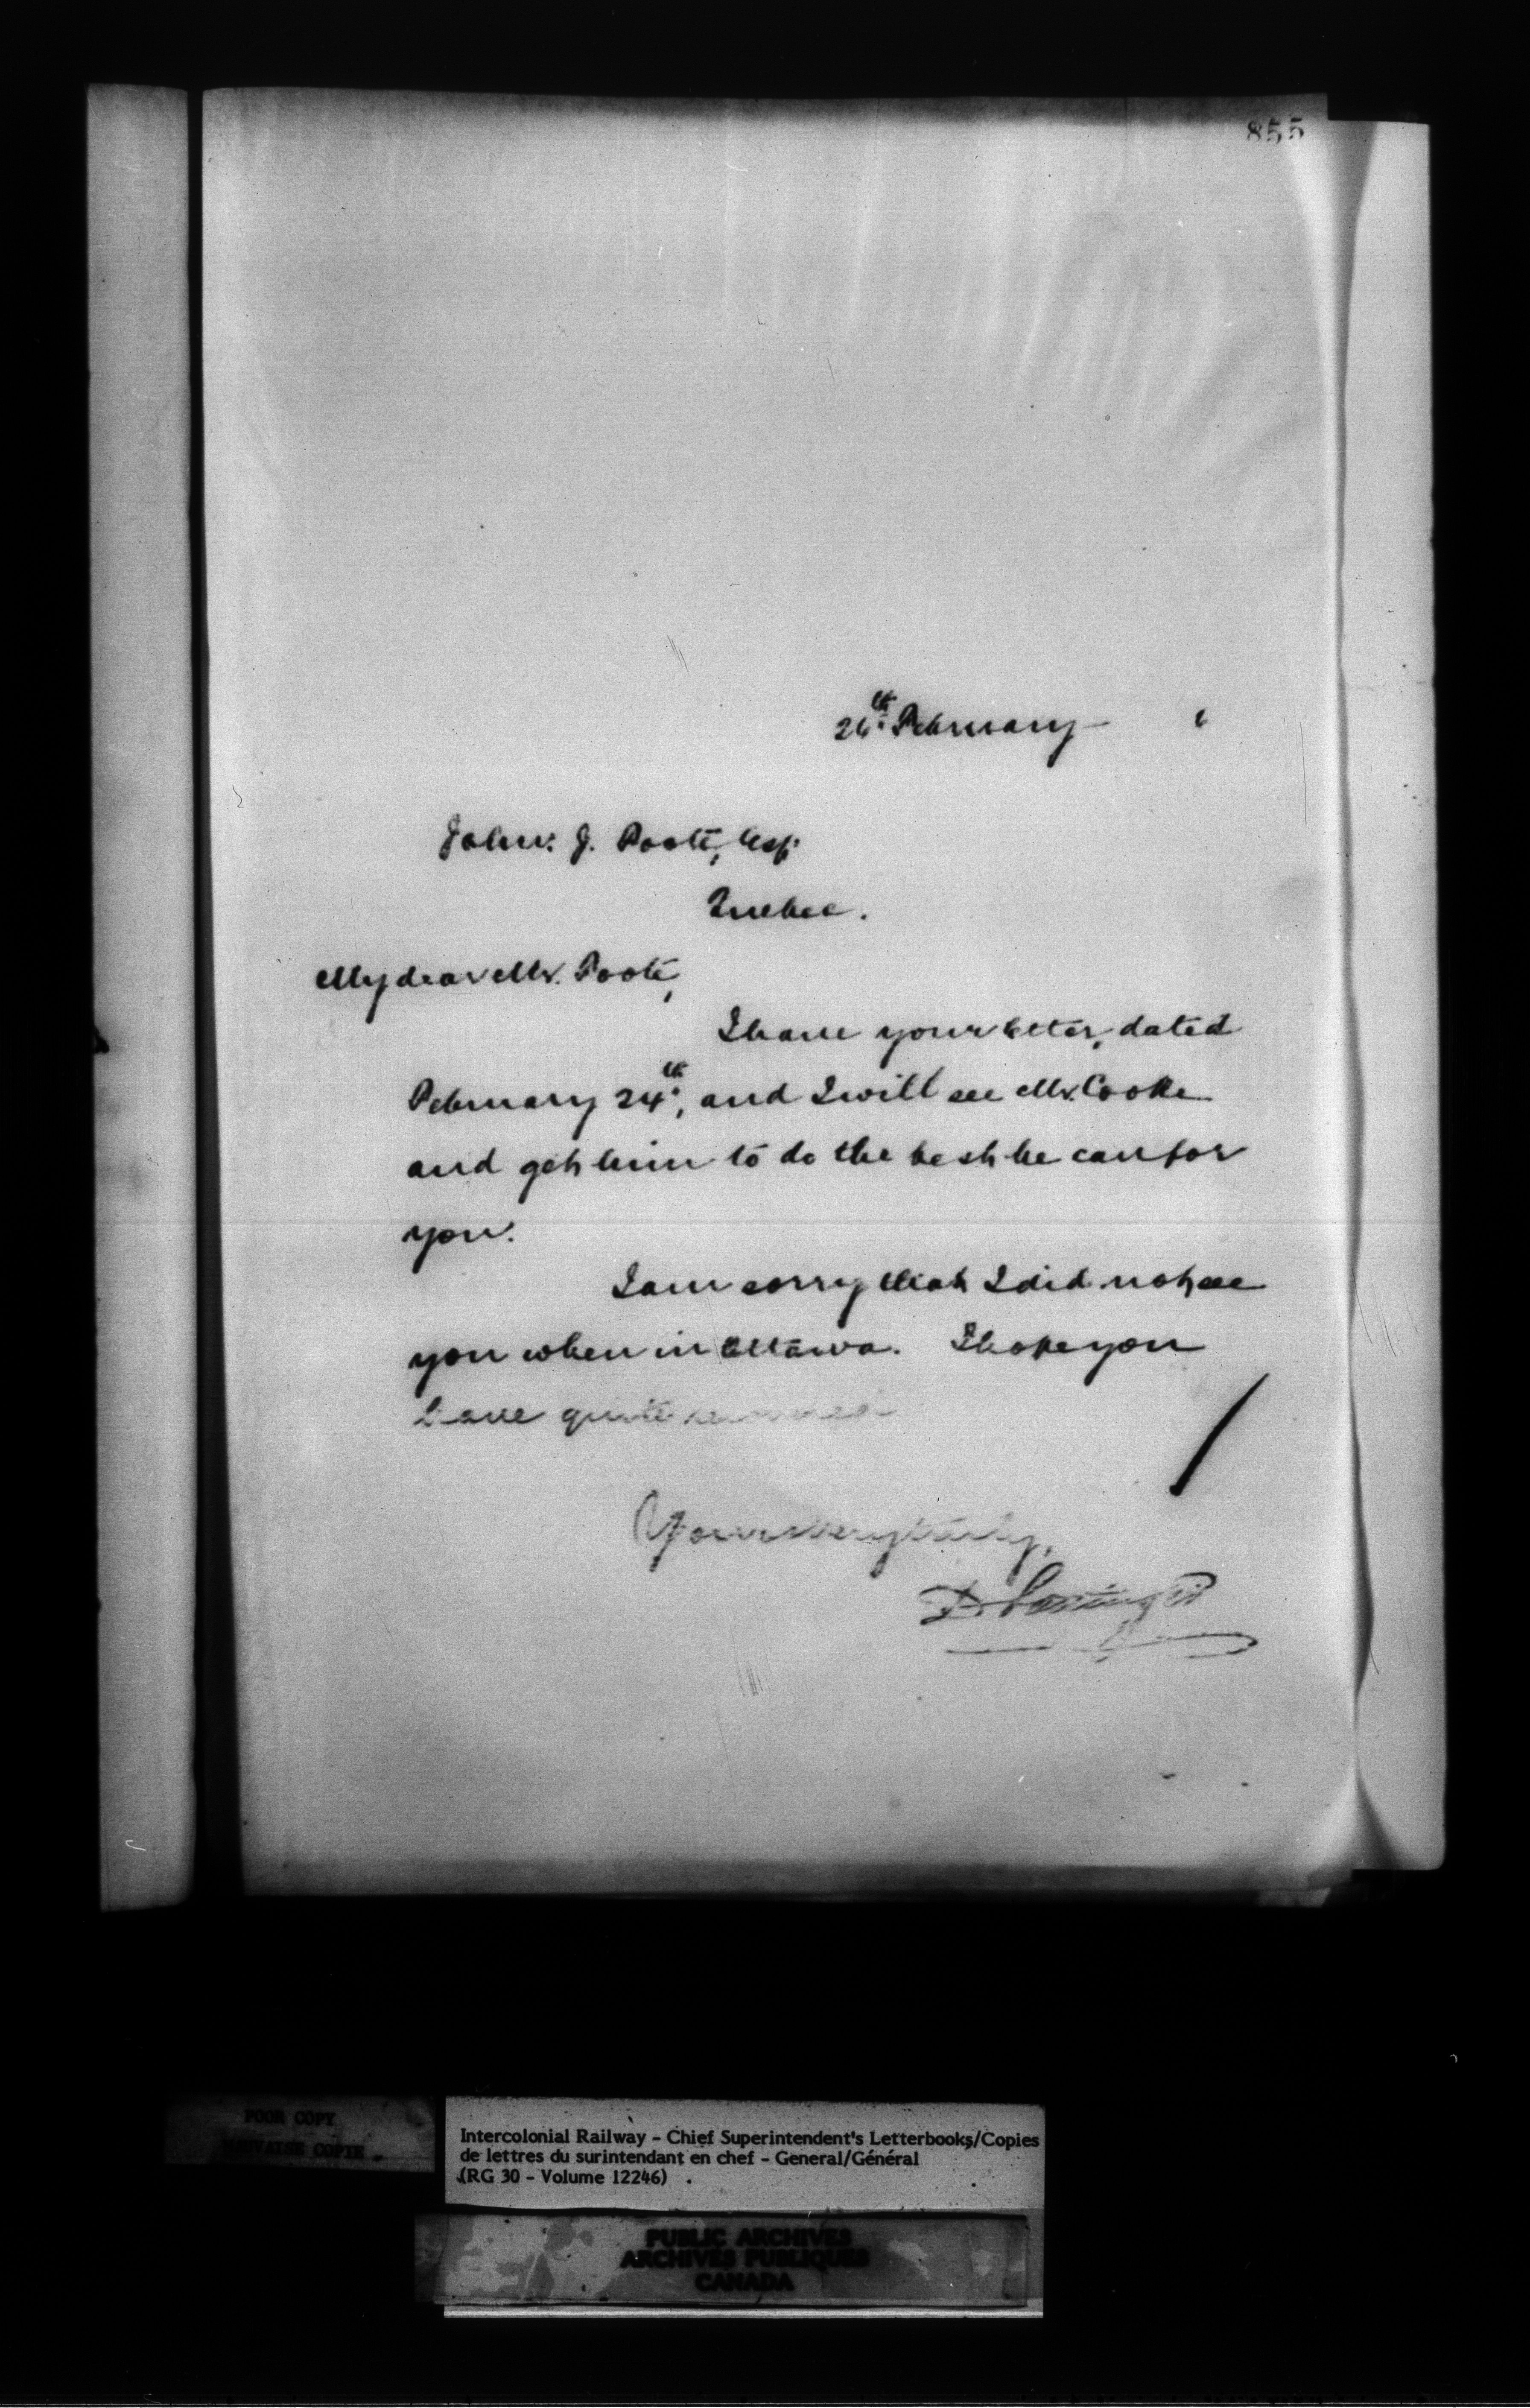 855
26th February
John. J. Foote, Esq.
Quebec.
My dear Mr. Foote,
I have your letter, dated
February 24th, and I will see Mr. Cooke
and get him to do the best he can for
you.
I am sorry that I did not see
you when in Ottawa. I hope you
have quite recovered
Yours very truly,
D. Pottinger
POOR COPY
MAUVAISE COPIE
Intercolonial Railway - Chief Superintendent's Letterbooks/Copies
de lettres du surintendant en chef - General/Général
(RG 30 - Volume 12246)
PUBLIC ARCHIVES
ARCHIVES PUBLIQUES
CANADA